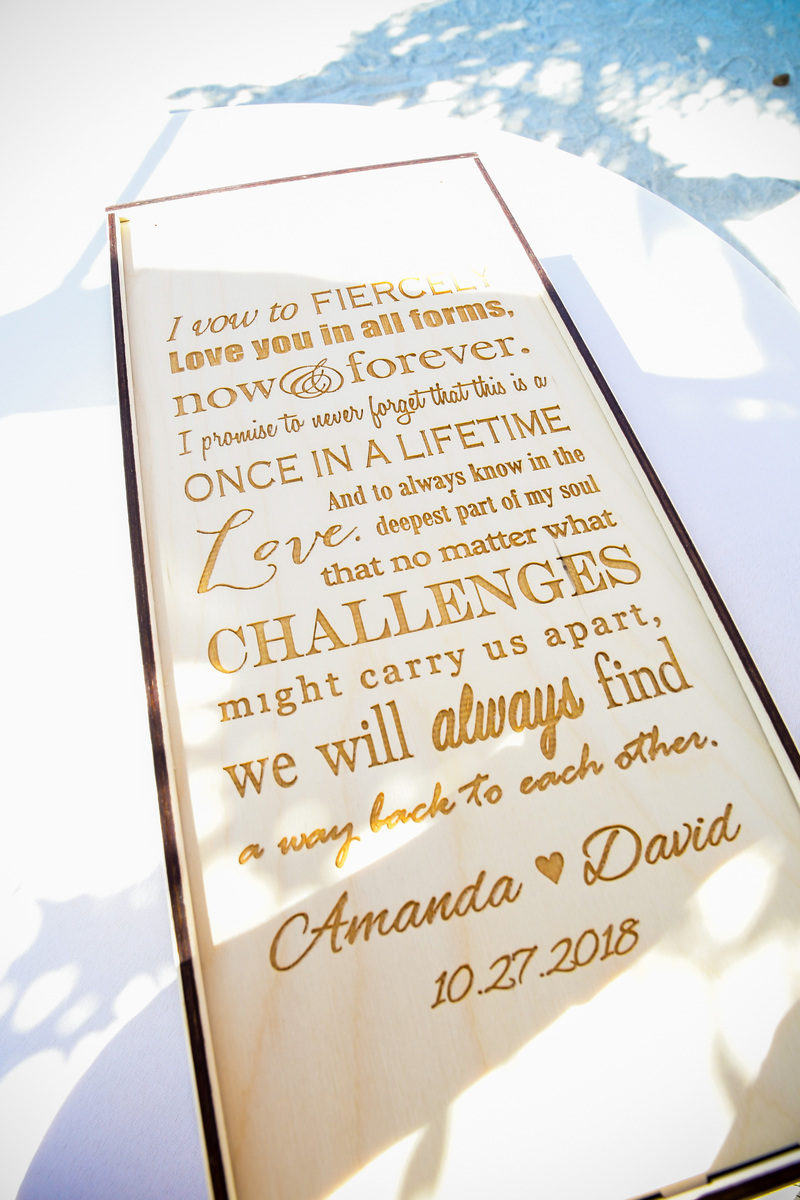 I vow to FIERCELY
Love you in all forms,
now & forever.
I promise to never forget that this is a
ONCE IN A LIFETIME
Love. And to always know in the
deepest part of my soul
that no matter what
CHALLENGES
might carry us apart,
we will always find
a way back to each other.
Amanda ♥ David
10.27.2018